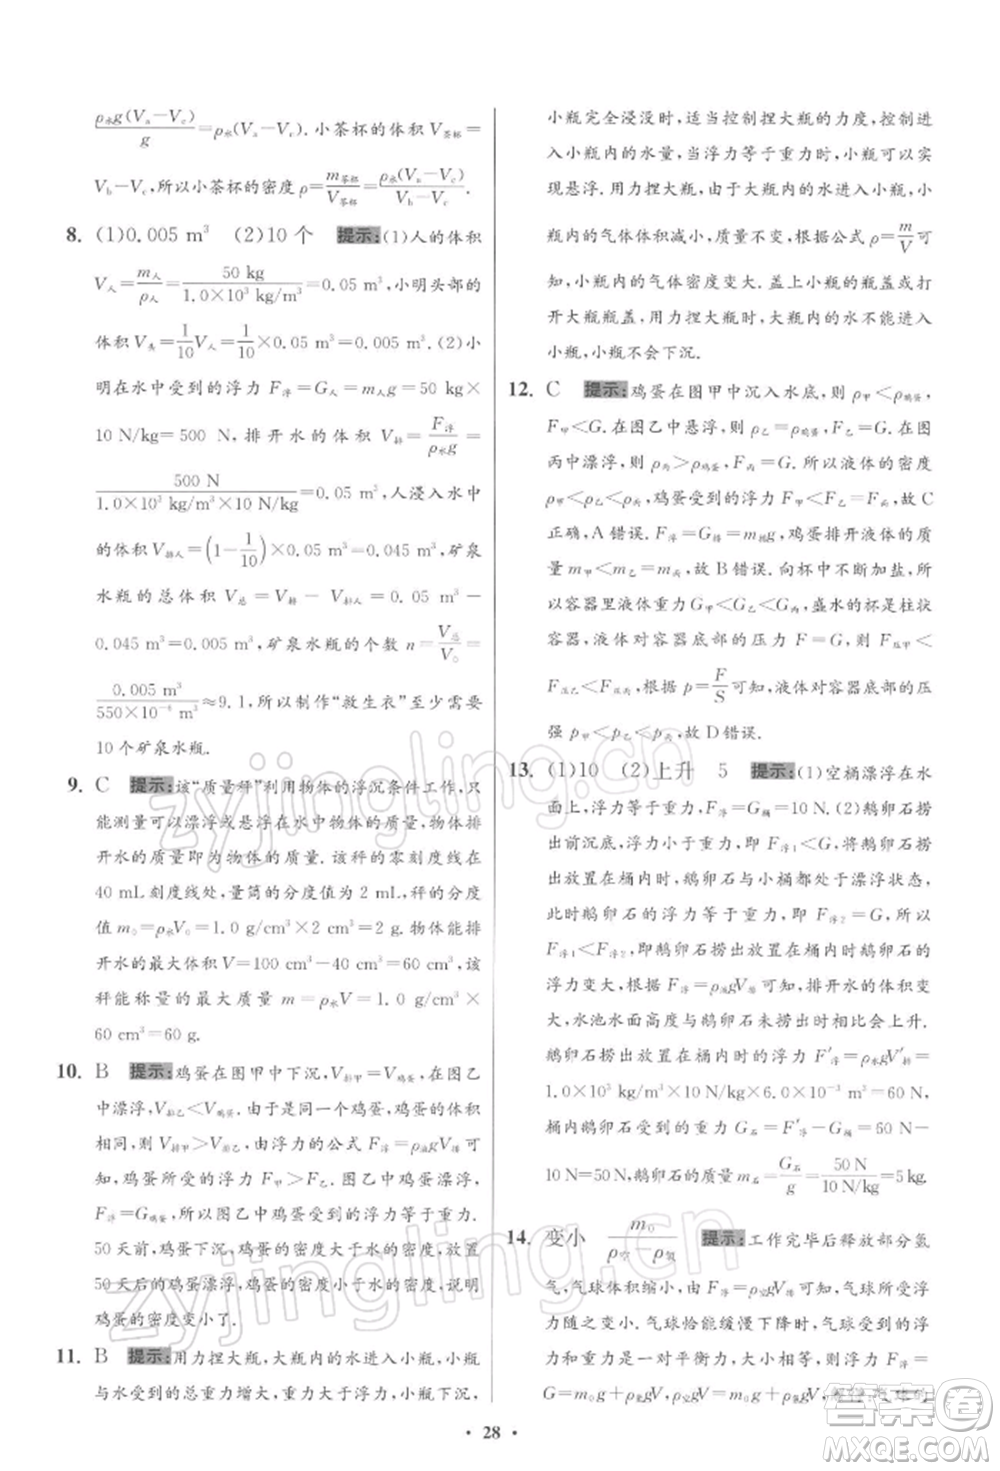 ρ水g(Va－Vc)/g＝ρ水(Va－Vc). 小茶杯的体积 V茶杯＝
Vb－Vc,所以小茶杯的密度 ρ＝m茶杯/V茶杯＝ρ水(Va－Vc)/(Vb－Vc).
8. (1)0.005 m³ (2)10 个 提示:(1)人的体积
V人＝m人/ρ人＝50 kg/(1.0×10³ kg/m³)＝0.05 m³,小明头部的
体积 V头＝1/10 V人＝1/10×0.05 m³＝0.005 m³. (2)小
明在水中受到的浮力 F浮＝G人＝m人g＝50 kg×
10 N/kg＝500 N,排开水的体积 V排＝F浮/ρ水g＝
500 N/(1.0×10³ kg/m³×10 N/kg)＝0.05 m³,人浸入水中
的体积 V排人＝(1－1/10)×0.05 m³＝0.045 m³,矿泉
水瓶的总体积 V总＝V排－V排人＝0.05 m³－
0.045 m³＝0.005 m³,矿泉水瓶的个数 n＝V总/V₀＝
0.005 m³/(550×10⁻⁶ m³)≈9.1,所以制作“救生衣”至少需要
10 个矿泉水瓶.
9. C 提示:该“质量秤”利用物体的浮沉条件工作,
只能测量可以漂浮或悬浮在水中物体的质量,物体排
开水的质量即为物体的质量. 该秤的零刻度线在
40 mL刻度线处,量筒的分度值为 2 mL,秤的分度
值 m₀＝ρ水V₀＝1.0 g/cm³×2 cm³＝2 g. 物体能排
开水的最大体积 V＝100 cm³－40 cm³＝60 cm³,该
秤能称量的最大质量 m＝ρ水V＝1.0 g/cm³×
60 cm³＝60 g.
10. B 提示:鸡蛋在图甲中下沉,V排甲＝V鸡蛋,在图乙
中漂浮,V排乙＜V鸡蛋. 由于是同一个鸡蛋,鸡蛋的体积
相同,则 V排甲＞V排乙,由浮力的公式 F浮＝ρ水gV排可
知,鸡蛋受到的浮力 F甲＞F乙. 图乙中鸡蛋漂浮,
F浮＝G鸡蛋,所以图乙中鸡蛋受到的浮力等于重力.
50 天前,鸡蛋下沉,鸡蛋的密度大于水的密度,放置
50 天后的鸡蛋漂浮,鸡蛋的密度小于水的密度,说明
鸡蛋的密度变小了.
11. B 提示:用力捏大瓶,大瓶内的水进入小瓶,小瓶
与水受到的总重力增大,重力大于浮力,小瓶下沉,
小瓶完全浸没时,适当控制捏大瓶的力度,控制进
入小瓶内的水量,当浮力等于重力时,小瓶可以实
现悬浮. 用力捏大瓶,由于大瓶内的水进入小瓶,小
瓶内的气体体积减小,质量不变,根据公式 ρ＝m/V可
知,小瓶内的气体密度变大. 盖上带孔的瓶盖或打
开大瓶瓶盖,用力捏大瓶时,大瓶内的水不能进入
小瓶,小瓶不会下沉.
12. C 提示:鸡蛋在图甲中沉入水底,则 ρ甲＜ρ鸡蛋,
F甲＜G. 在图乙中悬浮,ρ乙＝ρ鸡蛋,F乙＝G. 在图
丙中漂浮,ρ丙＞ρ鸡蛋,F丙＝G. 所以液体的密度
ρ甲＜ρ乙＜ρ丙,鸡蛋受到的浮力 F甲＜F乙＝F丙,故 C
正确,A 错误. F浮＝G排＝m排g,所以排开液体的质
量 m甲＜m乙＝m丙,故 B 错误. 向杯中不断加盐,
所以容器里液体重力 G甲＜G乙＜G丙,盛水的杯是柱状
容器,液体对容器底部的压力 F＝G,则 F压甲＜
F压乙＜F压丙,根据 p＝F/S可知,液体对容器底部的压
强 p甲＜p乙＜p丙,故 D 错误.
13. (1)10 (2)上升 5 提示:(1)空桶漂浮在水
面上,浮力等于重力,F浮＝G桶＝10 N. (2)鹅卵石捞
出前沉底,浮力小于重力,F浮1＜G,将鹅卵石捞
出后放置在桶内时,鹅卵石与小桶都处于漂浮状态,
此时鹅卵石的浮力等于重力,F浮2＝G,所以
F浮1＜F浮2,即鹅卵石捞出放在桶内时鹅卵石的
浮力变大,根据 F浮＝ρ水gV排可知,排开水的体积变
大,水池水面高度与鹅卵石未捞出时相比会上升.
此时桶和鹅卵石的总浮力 F′浮＝ρ水gV′排＝
1.0×10³ kg/m³×10 N/kg×6.0×10⁻³ m³＝60 N,
桶内鹅卵石的重力 G石＝F′浮－G桶＝60 N－
10 N＝50 N,鹅卵石的质量 m石＝G石/g＝50 N/(10 N/kg)＝5 kg.
14. 变小 m₀/(ρ空－ρ氦) 提示:工作完毕后释放部分氦
气,气球体积缩小,F浮＝ρ空gV变小,气球所受浮
力随之变小. 气球恰能缓慢下降时,气球受到的浮
力和重力是一对平衡力,大小相等,所以浮力 F浮＝
G＝m₀g＋ρ氦gV,即 ρ空gV＝m₀g＋ρ氦gV,
· 28 ·
zyjingling.cn
zyjingling.cn
答案圈
MXQE.COM